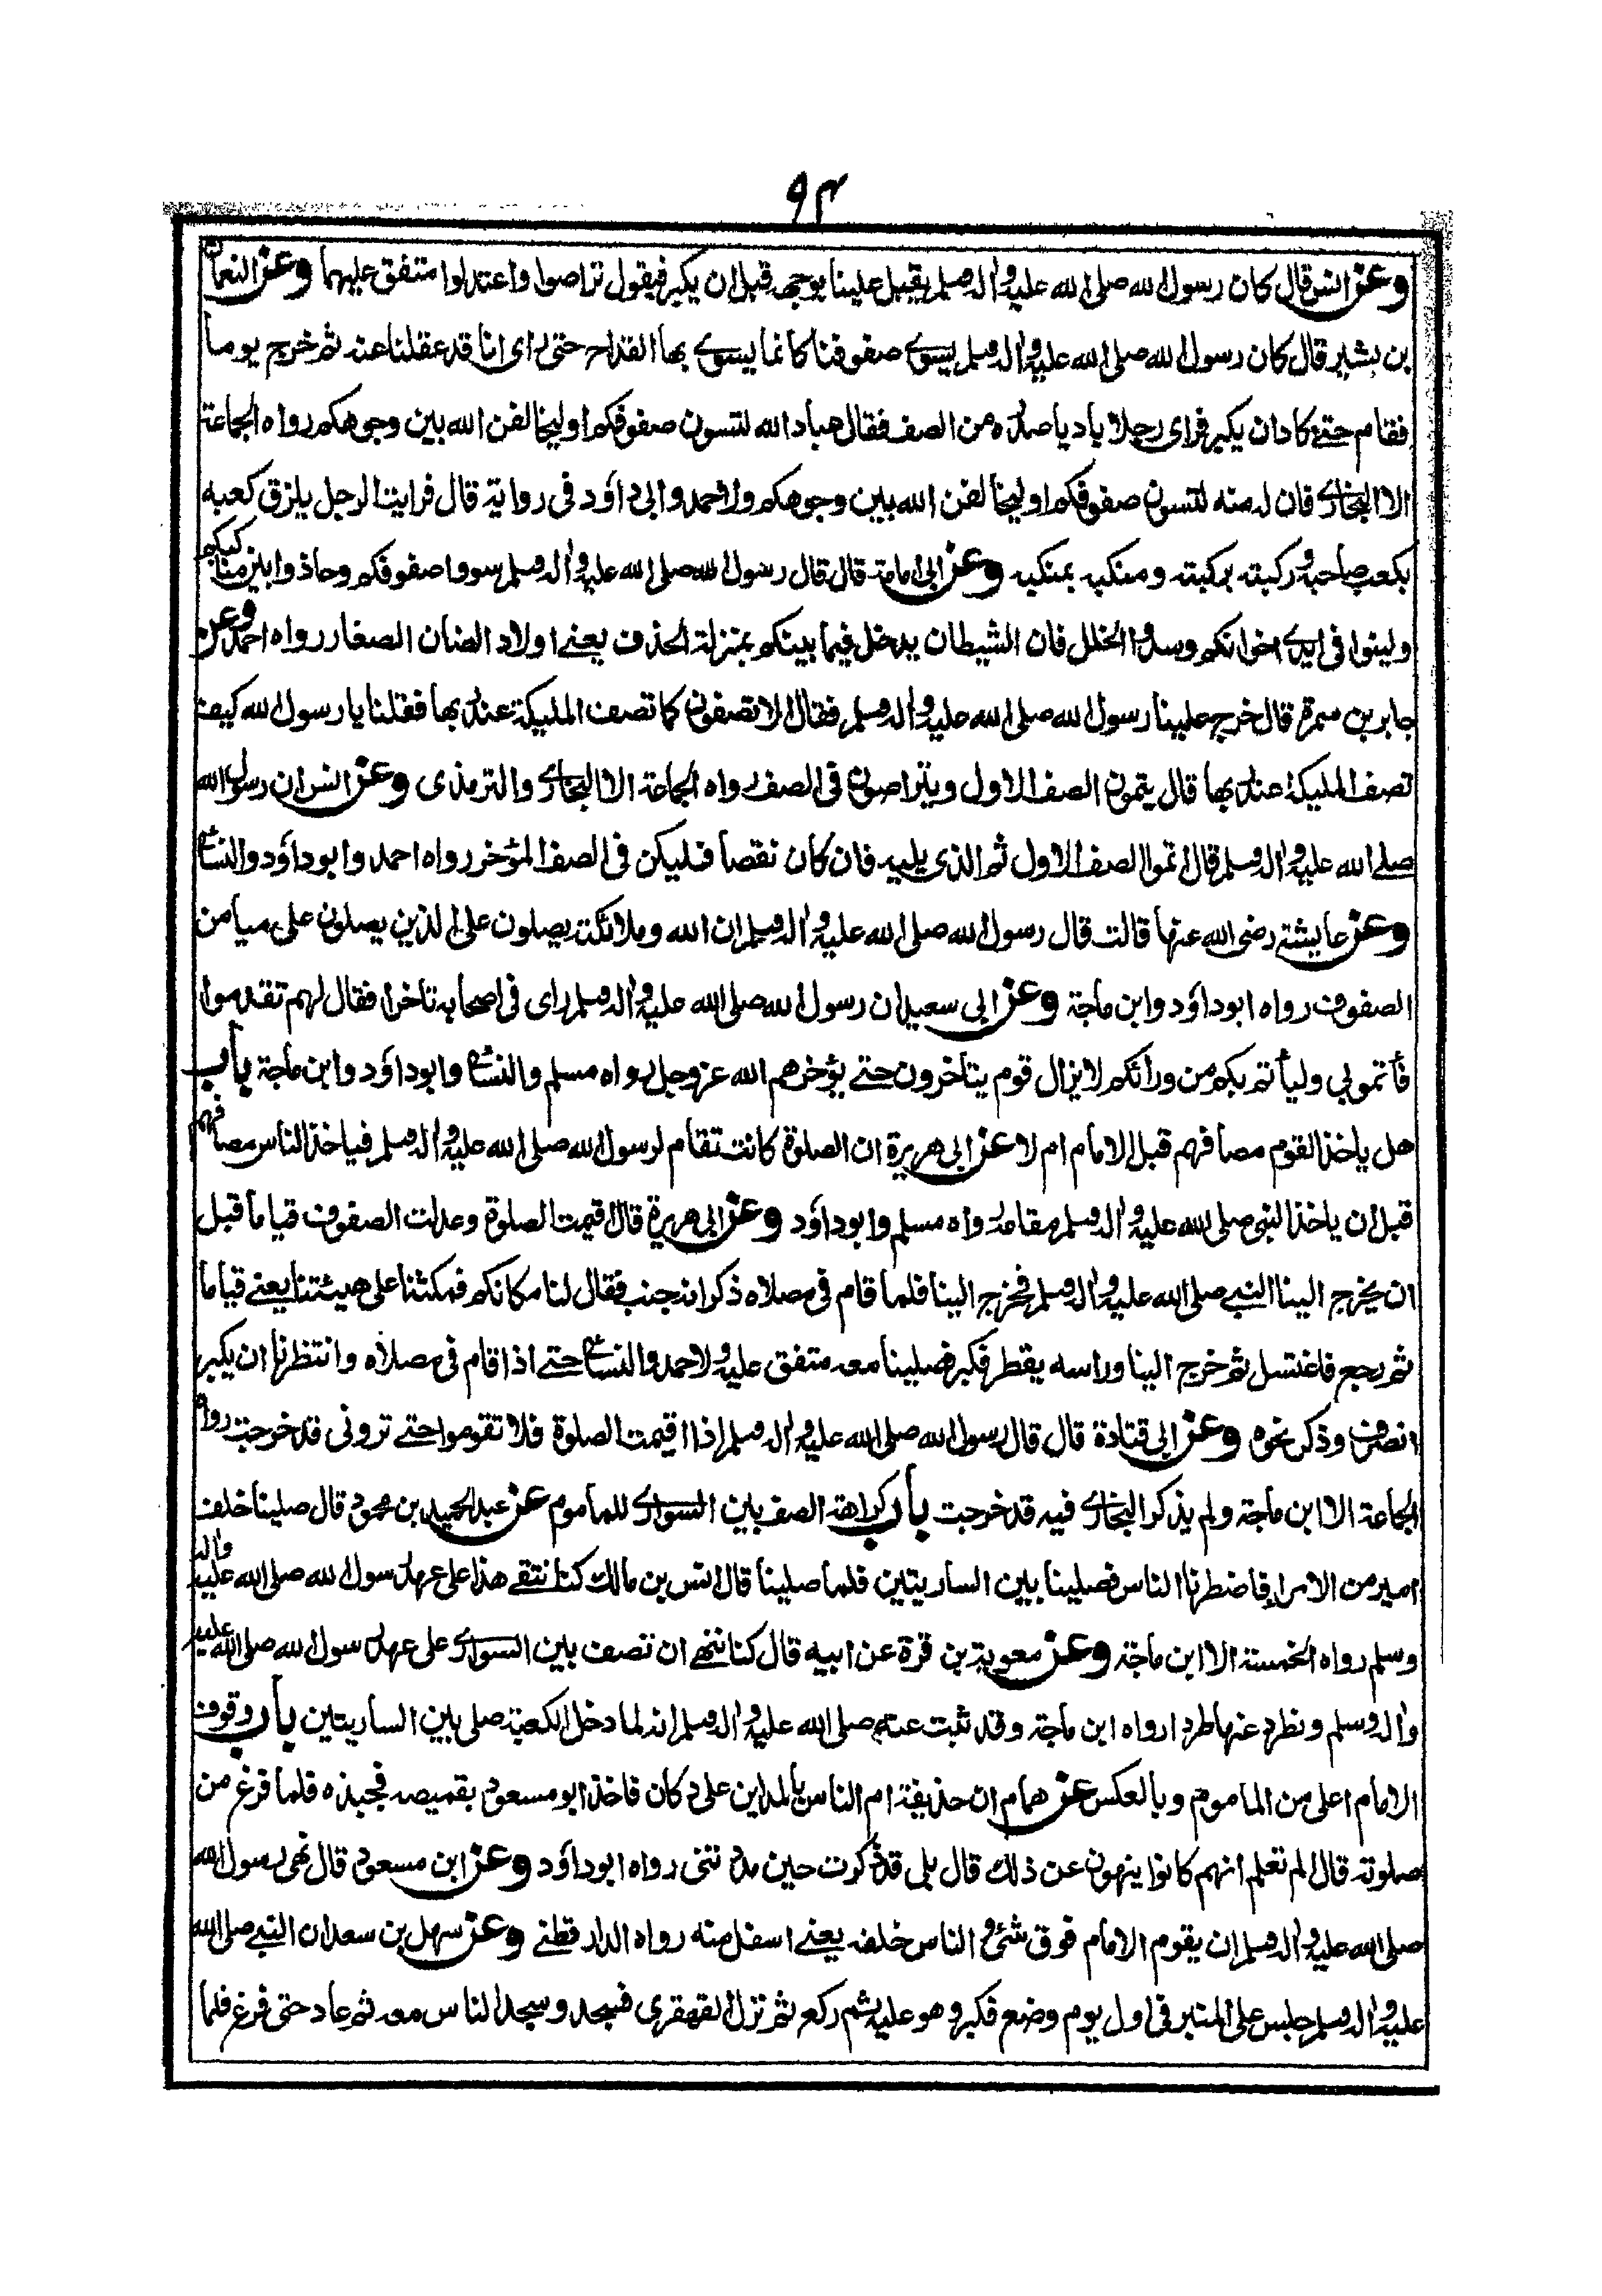 ٩٣
وعن انس قال كان رسول الله صلى الله عليه واله وسلم يقبل علينا بوجهه قبل ان يكبر فيقول تراصوا واعتدلوا متفق عليهما وعن النعمان
بن بشير قال كان رسول الله صلى الله عليه واله وسلم يسوى صفوفنا كانما يسوى بها القداح حتى راى انا قد عقلنا عنه ثم خرج يوما
فقام حتى كاد ان يكبر فراى رجلا باديا صدره من الصف فقال عباد الله لتسون صفوفكم او ليخالفن الله بين وجوهكم رواه الجماعة
الا البخارى فان له منه لتسون صفوفكم او ليخالفن الله بين وجوهكم ولاحمد وابى داؤد فى رواية قال فرايت الرجل يلزق كعبه
بكعب صاحبه وركبته بركبته ومنكبه بمنكبه وعن ابى امامة قال قال رسول الله صلى الله عليه واله وسلم سووا صفوفكم وحاذوا بين مناكبكم
ولينوا فى ايدى اخوانكم وسدوا الخلل فان الشيطان يدخل فيما بينكم بمنزلة الحذف يعنى اولاد الضان الصغار رواه احمد وعن
جابر بن سمرة قال خرج علينا رسول الله صلى الله عليه واله وسلم فقال الا تصفون كما تصف المليكة عند ربها فقلنا يا رسول الله كيف
تصف المليكة عند ربها قال يتمون الصف الاول ويتراصون فى الصف رواه الجماعة الا البخارى والترمذى وعن انس ان رسول الله
صلى الله عليه واله وسلم قال اتموا الصف الاول ثم الذى يليه فان كان نقصا فليكن فى الصف المؤخر رواه احمد وابوداؤد والنسائى
وعن عايشة رضى الله عنها قالت قال رسول الله صلى الله عليه واله وسلم ان الله وملائكته يصلون على الذين يصلون على ميامن
الصفوف رواه ابوداؤد وابن ماجة وعن ابى سعيد ان رسول الله صلى الله عليه واله وسلم راى فى اصحابه تاخرا فقال لهم تقدموا
فأتموبى وليأتم بكم من ورائكم لايزال قوم يتأخرون حتى يؤخرهم الله عزوجل رواه مسلم والنسائى وابوداؤد وابن ماجة باب
هل ياخذ القوم مصافهم قبل الامام ام لا عن ابى هريرة ان الصلوة كانت تقام لرسول الله صلى الله عليه واله وسلم فياخذ الناس مصافهم
قبل ان ياخذ النبى صلى الله عليه واله وسلم مقامه رواه مسلم وابوداؤد وعن ابى هريرة قال اقيمت الصلوة وعدلت الصفوف قياما قبل
ان يخرج الينا النبى صلى الله عليه واله وسلم فخرج الينا فلما قام فى مصلاه ذكر انه جنب فقال لنا مكانكم فمكثنا على هيئتنا يعنى قياما
ثم رجع فاغتسل ثم خرج الينا وراسه يقطر فكبر فصلينا معه متفق عليه ولاحمد والنسائى حتى اذا قام فى مصلاه وانتظرنا ان يكبر
انصرف وذكر نحوه وعن ابى قتادة قال قال رسول الله صلى الله عليه واله وسلم اذا اقيمت الصلوة فلا تقوموا حتى ترونى قد خرجت رواه
الجماعة الا ابن ماجة ولم يذكر البخارى فيه قد خرجت باب كراهة الصف بين السوارى للماموم عن عبد الحميد بن محمود قال صلينا خلف
امير من الامراء فاضطرنا الناس فصلينا بين الساريتين فلما صلينا قال انس بن مالك كنا نتقى هذا على عهد رسول الله صلى الله عليه واله
وسلم رواه الخمسة الا ابن ماجة وعن معوية بن قرة عن ابيه قال كنا ننهى ان نصف بين السوارى على عهد رسول الله صلى الله عليه
واله وسلم ونطرد عنها طردا رواه ابن ماجة وقد ثبت عنه صلى الله عليه واله وسلم انه لما دخل الكعبة صلى بين الساريتين باب وقوف
الامام اعلى من الماموم وبالعكس عن همام ان حذيفة ام الناس بالمداين على دكان فاخذ ابو مسعود بقميصه فجبذه فلما فرغ من
صلوته قال الم تعلم انهم كانوا ينهون عن ذلك قال بلى قد ذكرت حين مددتنى رواه ابوداؤد وعن ابن مسعود قال نهى رسول الله
صلى الله عليه واله وسلم ان يقوم الامام فوق شئ والناس خلفه يعنى اسفل منه رواه الدارقطنى وعن سهل بن سعد ان النبى صلى الله
عليه واله وسلم جلس على المنبر فى اول يوم وضع فكبر وهو عليه ثم ركع ثم نزل القهقرى فسجد وسجد الناس معه ثم عاد حتى فرغ فلما